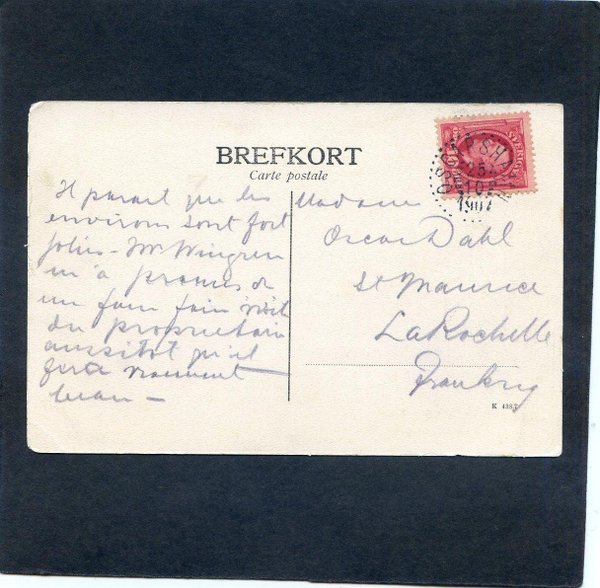 BREFKORT
Carte postale
Il parait que les
environs sont fort
jolis - Mr Wingren
m'a promis de
me faire faire visite
du proprietaire
aussitot qu'il
fera vraiment
beau -
Madame
Oscar Dahl
St Maurice
La Rochelle
Frankrig
K 4387
SVERIGE
OSKARSHAMN
1907